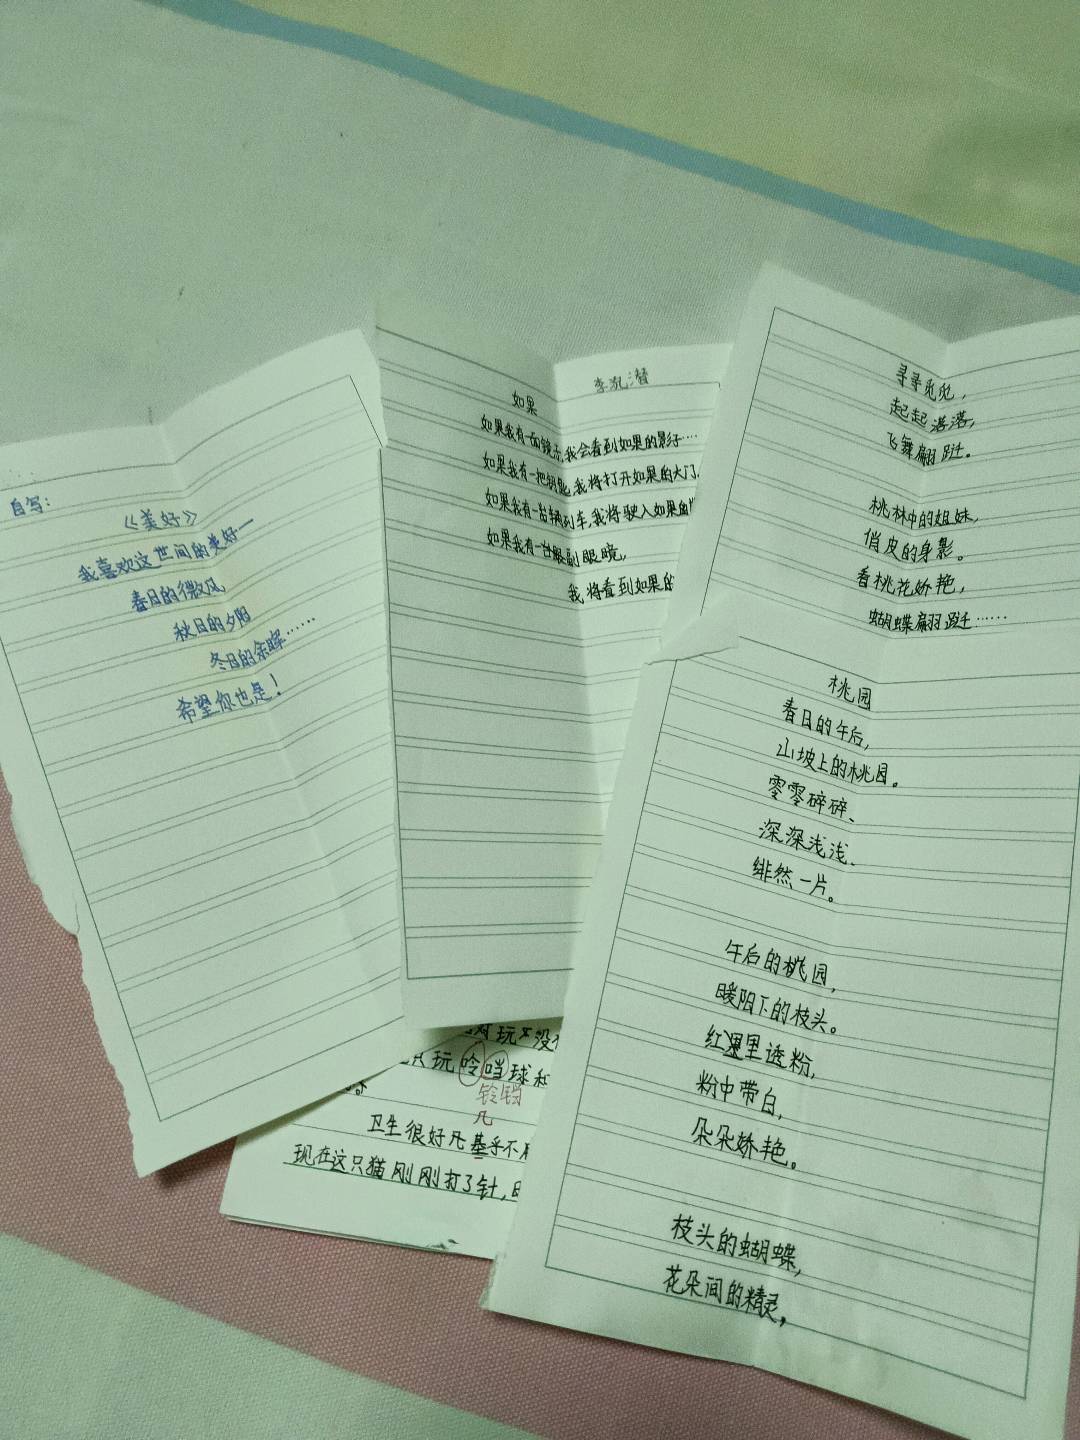 自写：
《美好》
我喜欢这世间的美好一
春日的微风
秋日的夕阳
冬日的余晖……
希望你也是！
如果
如果我有一面镜子,我会看到如果的影子…
如果我有一把钥匙,我将打开如果的大门.
如果我有一台辆列车,我将驶入如果的
如果我有一台眼副眼镜,
我将看到如果的
桃园
春日的午后,
山坡上的桃园。
零零碎碎、
深深浅浅、
绯然一片。
午后的桃园,
暖阳下的枝头。
红里透粉,
粉中带白,
朵朵娇艳。
枝头的蝴蝶,
花朵间的精灵,
寻寻觅觅,
起起落落,
飞舞翩跹。
桃林中的姐妹,
俏皮的身影。
看桃花娇艳,
蝴蝶翩跹……
玩 没
只玩呤哨球和
铃铛
几
卫生很好凡基乎不用
现在这只猫刚刚打了针,